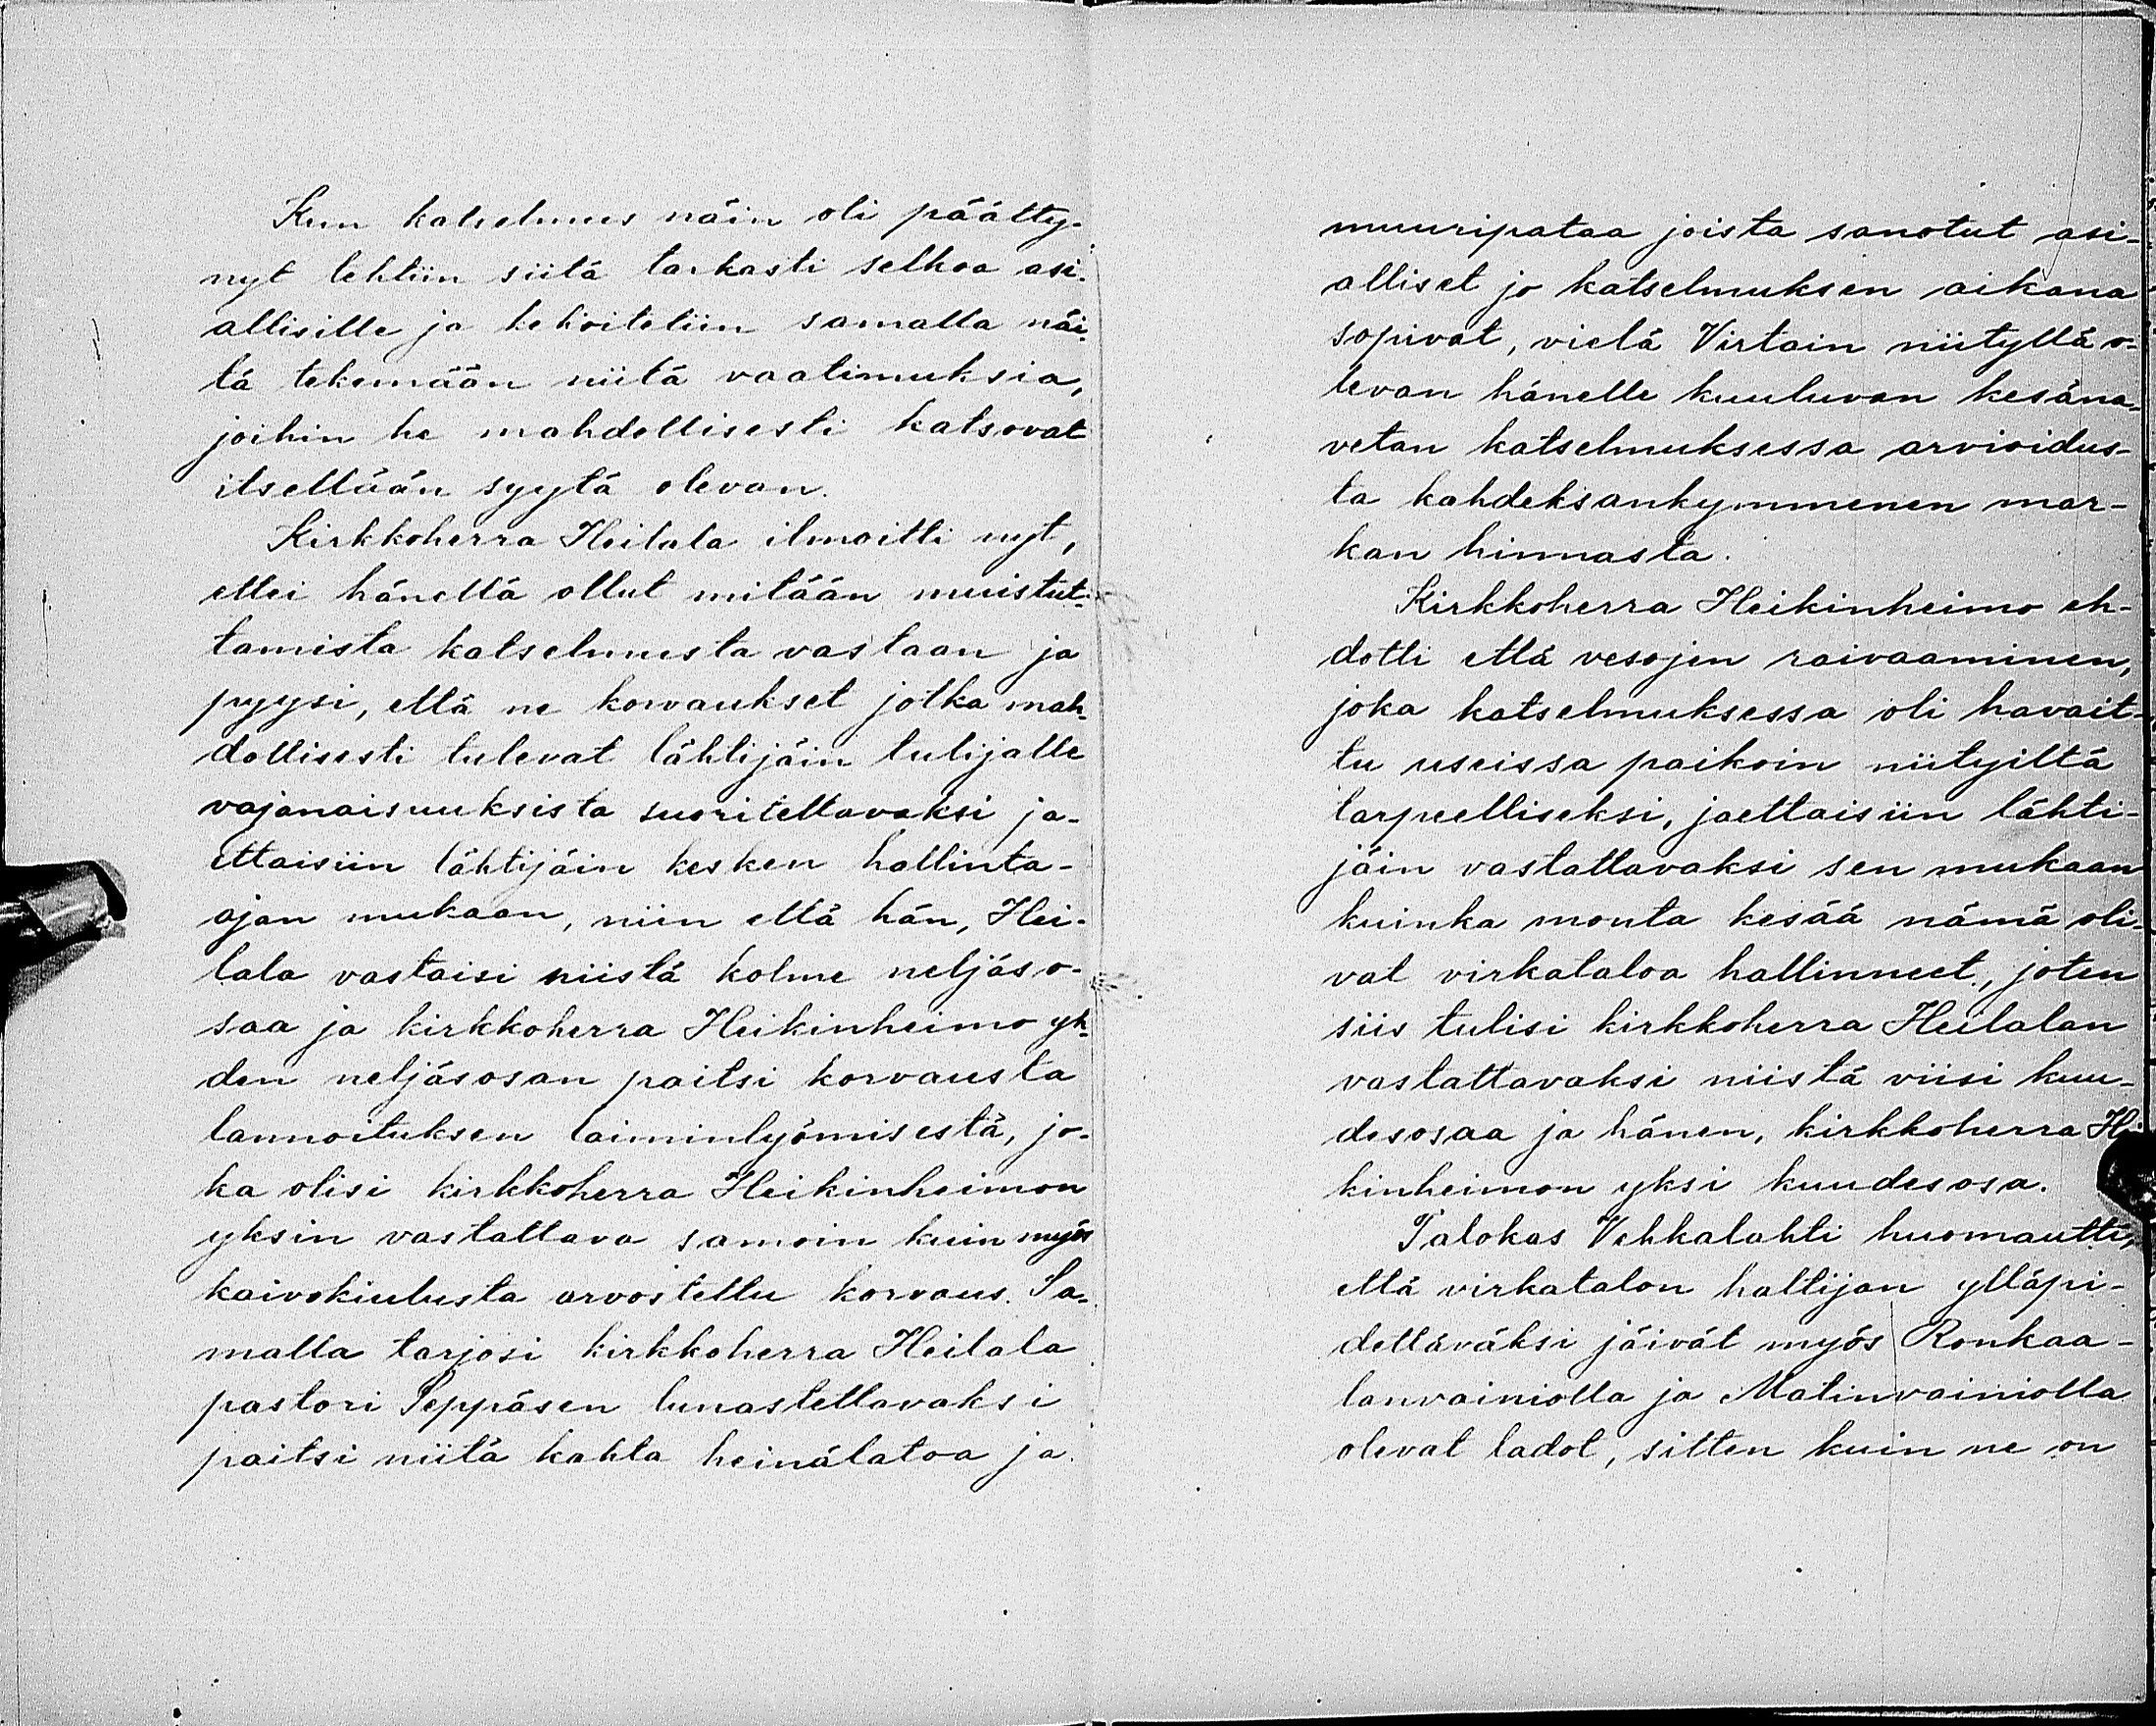 Kun katselmus näin oli päätty-
nyt tehtiin siitä tarkasti selkoa asi-
allisille ja kehoitetiin samalla näi-
tä tekemään niitä vaatimuksia,
joihin he mahdollisesti katsovat
itsellään syytä olevan.
Kirkkoherra Heilala ilmoitti nyt,
ettei hänellä ollut mitään muistut-
tamista katselmusta vastaan ja
pyysi, että ne korvaukset jotka mah-
dollisesti tulevat lähtijäin tulijalle
vajanaisuuksista suoritettavaksi ja-
ettaisiin lähtijäin kesken hallinta-
ajan mukaan, niin että hän, Hei-
lala vastaisi niistä kolme neljäso-
saa ja kirkkoherra Heikinheimo yh-
den neljäsosan paitsi korvausta
lannoituksen laiminlyömisestä, jo-
ka olisi kirkkoherra Heikinheimon
yksin vastattava samoin kuin myös
kaivokiulusta arvosteltu korvaus. Sa-
malla tarjosi kirkkoherra Heilala
pastori Seppäsen lunastettavaksi
paitsi niitä kahta heinälatoa ja
muuripataa joista sanotut asi-
alliset jo katselmuksen aikana
sopivat, vielä Virtain niityllä o-
levan hänelle kuuluvan kesäna-
vetan katselmuksessa arvioidus-
ta kahdeksankymmenen mar-
kan hinnasta.
Kirkkoherra Heikinheimo eh-
dotti että vesojen raivaaminen,
joka katselmuksessa oli havait-
tu useissa paikoin niityiltä
tarpeelliseksi, jaettaisiin lähti-
jäin vastattavaksi sen mukaan
kuinka monta kesää nämä oli-
vat virkataloa hallinneet, joten
siis tulisi kirkkoherra Heilalan
vastattavaksi niistä viisi kuu-
desosaa ja hänen, kirkkoherra Hei
kinheimon yksi kuudesosa.
Talokas Vehkalahti huomautti,
että virkatalon haltijan ylläpi-
dettäväksi jäivät myös Ronkaa-
lanvainiolla ja Matinvainiolla
olevat ladot, sitten kuin ne on